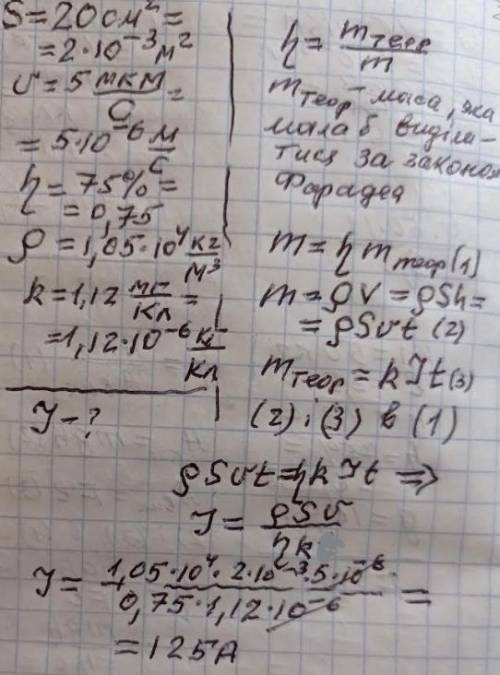 S = 20 см² =
= 2·10⁻³ м²
v = 5 мкм/с =
= 5·10⁻⁶ м/с
η = 75% =
= 0,75
ρ = 1,05·10⁴ кг/м³
k = 1,12 мг/Кл =
= 1,12·10⁻⁶ кг/Кл
I - ?
η = mтеор/m
mтеор - маса, яка
мала б виділи-
тись за законом
Фарадея
m = η mтеор (1)
m = ρV = ρSh =
= ρSvt (2)
mтеор = kIt (3)
(2) і (3) в (1)
ρSvt = ηkIt ⇒
I = ρSv/ηk
I = 1,05·10⁴·2·10⁻³·5·10⁻⁶/0,75·1,12·10⁻⁶ =
= 125А